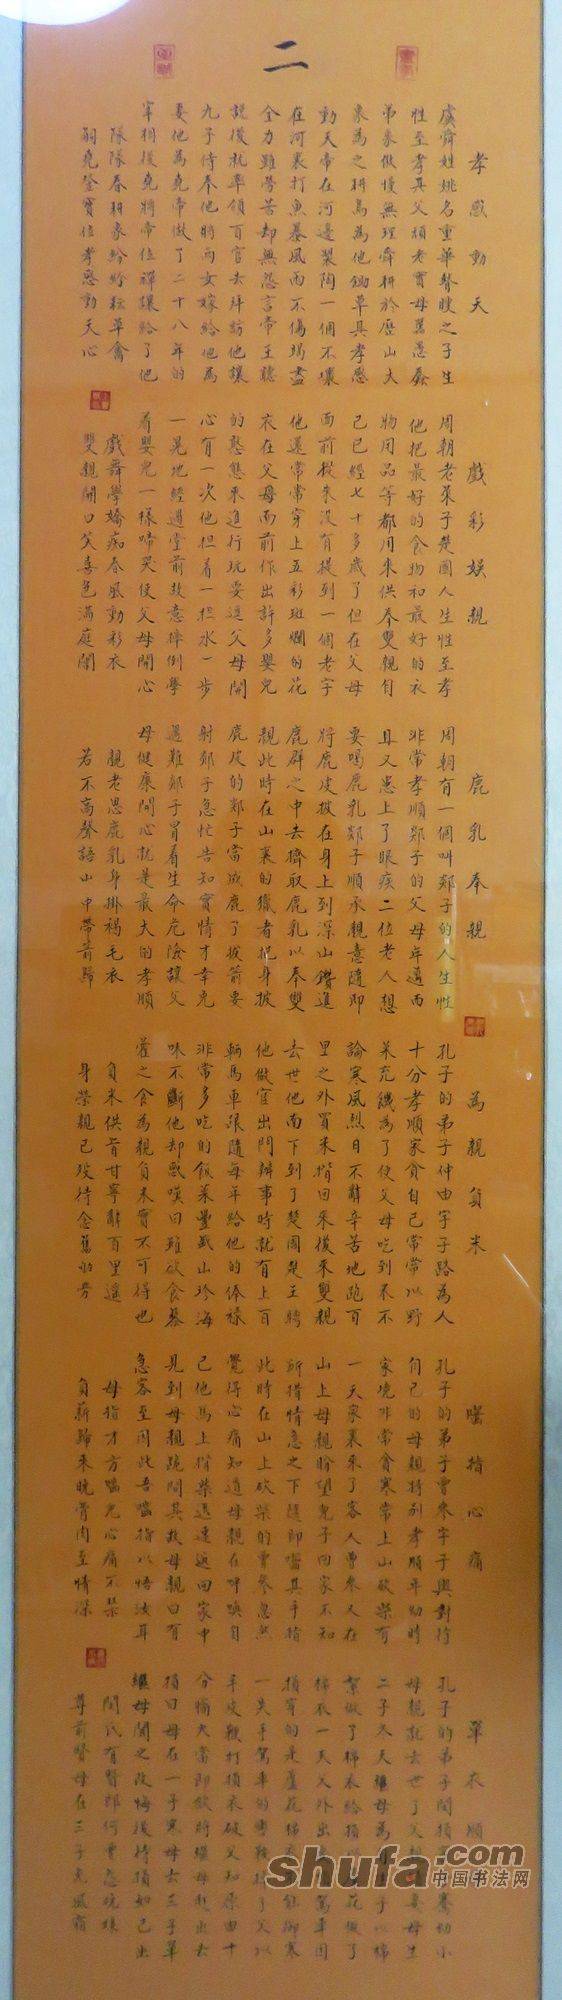 二
孝感動天
虞舜姓姚名重華瞽瞍之子生
性至孝其父頑老實母嚚愚蠢
弟象傲慢無理舜耕於歷山大
象為之耕鳥為他鋤草其孝感
動天帝在河邊製陶一個不壞
在河裏打魚暴風雨不傷竭盡
全力雖勞苦却無怨言帝王聽
說後就率領百官去拜訪他讓
九子侍奉他將兩女嫁給他為
妻他為堯帝做了二十八年的
宰相後堯將帝位禪讓給了他
隊隊春耕象紛紛耘草禽
嗣堯登寶位孝感動天心
戲彩娛親
周朝老萊子楚國人生性至孝
他把最好的食物和最好的衣
物用品等都用來供奉雙親自
己已經七十多歲了但在父母
面前從來沒有提到一個老字
他還常常穿上五彩斑斕的花
衣在父母面前作出許多嬰兒
的憨態來進行玩耍逗父母開
心有一次他担着一担水一步
一晃地經過堂前故意摔倒學
着嬰兒一樣啼哭使父母開心
戲舞學嬌痴春風動彩衣
雙親開口笑喜色滿庭闈
鹿乳奉親
周朝有一個叫郯子的人生性
非常孝順郯子的父母年邁而
且又患上了眼疾二位老人想
要喝鹿乳郯子順承親意隨即
將鹿皮披在身上到深山鑽進
鹿群之中去擠取鹿乳以奉雙
親此時在山裏的獵者把身披
鹿皮的郯子當成鹿了拔箭要
射郯子急忙告知實情才幸免
遇難郯子冒着生命危險讓父
母健康開心就是最大的孝順
親老思鹿乳身掛褐毛衣
若不高聲語山中帶箭歸
為親負米
孔子的弟子仲由字子路為人
十分孝順家貧自己常常以野
菜充饑為了使父母吃到米不
論寒風烈日不辭辛苦地跑百
里之外買米揹回來後來雙親
去世他南下到了楚國楚王聘
他做官出門辦事時就有上百
輛馬車跟隨每年給他的俸祿
非常多吃的飯菜豐盛山珍海
味不斷他却感嘆曰雖欲食藜
藿之食為親負米實不可得也
負米供旨甘寧辭百里遙
身榮親已歿猶念舊劬勞
嚙指心痛
孔子的弟子曾參字子輿對待
自己的母親特別孝順年幼時
家境非常貧寒常上山砍柴有
一天家裏來了客人曾參又在
山上母親盼望兒子回家不知
所措情急之下隨即嚙其手指
此時在山上砍柴的曾參忽然
覺得心痛知道母親在呼喚自
己他馬上揹柴迅速返回家中
見到母親跪問其故母親曰有
急客至因此吾嚙指以悟汝耳
母指才方嚙兒心痛不禁
負薪歸來晚骨肉至情深
單衣順
孔子的弟子閔損
母親就去世了父
二子冬天繼母為
絮做了棉衣給損
棉衣一天父外出
損穿的是蘆花棉
一失手駕車的
手皮鞭打損衣破父知原由十
分憤大當即欲將繼母趕出去
損曰母在一子寒母去三子單
繼母聞之改悔後待損如己出
閔氏有賢郎何曾怨晚娘
尊前賢母在三子免風霜
shufa.com
中国书法网